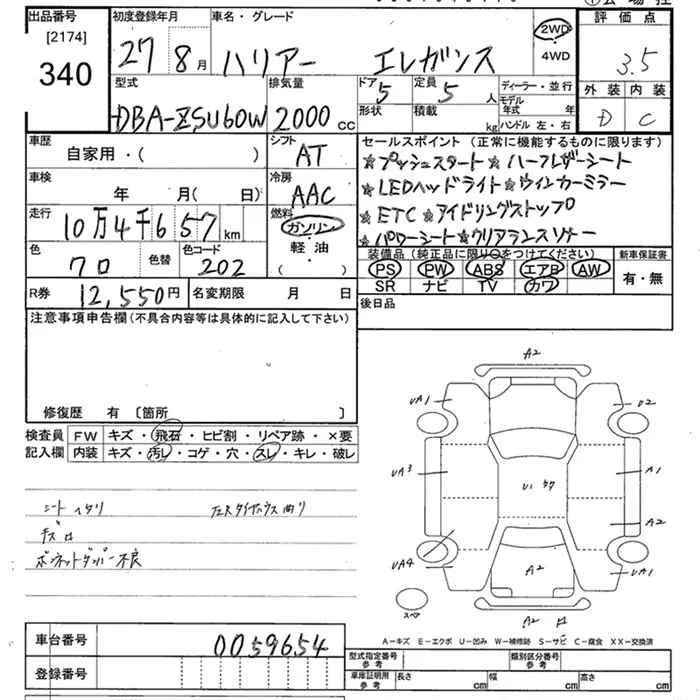 出品番号
[2174]
340
初度登録年月
27 8月
車名・グレード
ハリアー エレガンス
2WD
・
4WD
評価点
3.5
外装 内装
D C
型式
DBA-ZSU60W
排気量
2000 cc
ドア
5
定員
5 人
形状
積載
kg
ディーラー・並行
モデル
年式 年
ハンドル 左・右
車歴
自家用・( )
シフト
AT
車検
年 月(日)
冷房
AAC
走行
10万4千657 km
燃料
ガソリン
・
軽・油
・
( )
色
クロ
色替
色コード
202
R券
12,550円
名変期限 月 日
セールスポイント(正常に機能するものに限ります)
☆プッシュスタート☆ハーフレザーシート
☆LEDヘッドライト☆ウィンカーミラー
☆ETC☆アイドリングストップ
☆パワーシート☆クリアランスソナー
装備品(純正品に限り○をつけてください)
PS PW ABS エアB AW
SR ナビ TV カワ
新車保証書
有・無
後日品
注意事項申告欄(不具合内容等は具体的に記入して下さい)
修復歴 有 〔箇所 〕
検査員
記入欄
FW キズ・飛石・ヒビ割・リペア跡・×要
内装 キズ・汚レ・コゲ・穴・スレ・キレ・破レ
シートヘタリ
ボンネットダンパー不良
A2
UA1
UA3
A1
A2
UA4
A2
UA1
スペア
A2
A-キズ E-エクボ U-凹み W-補修跡 S-サビ C-腐食 XX-交換済
車台番号
0059654
登録番号
型式指定番号
参考
類別区分番号
参考
車庫証明用
参考
長さ cm
幅 cm
高さ cm